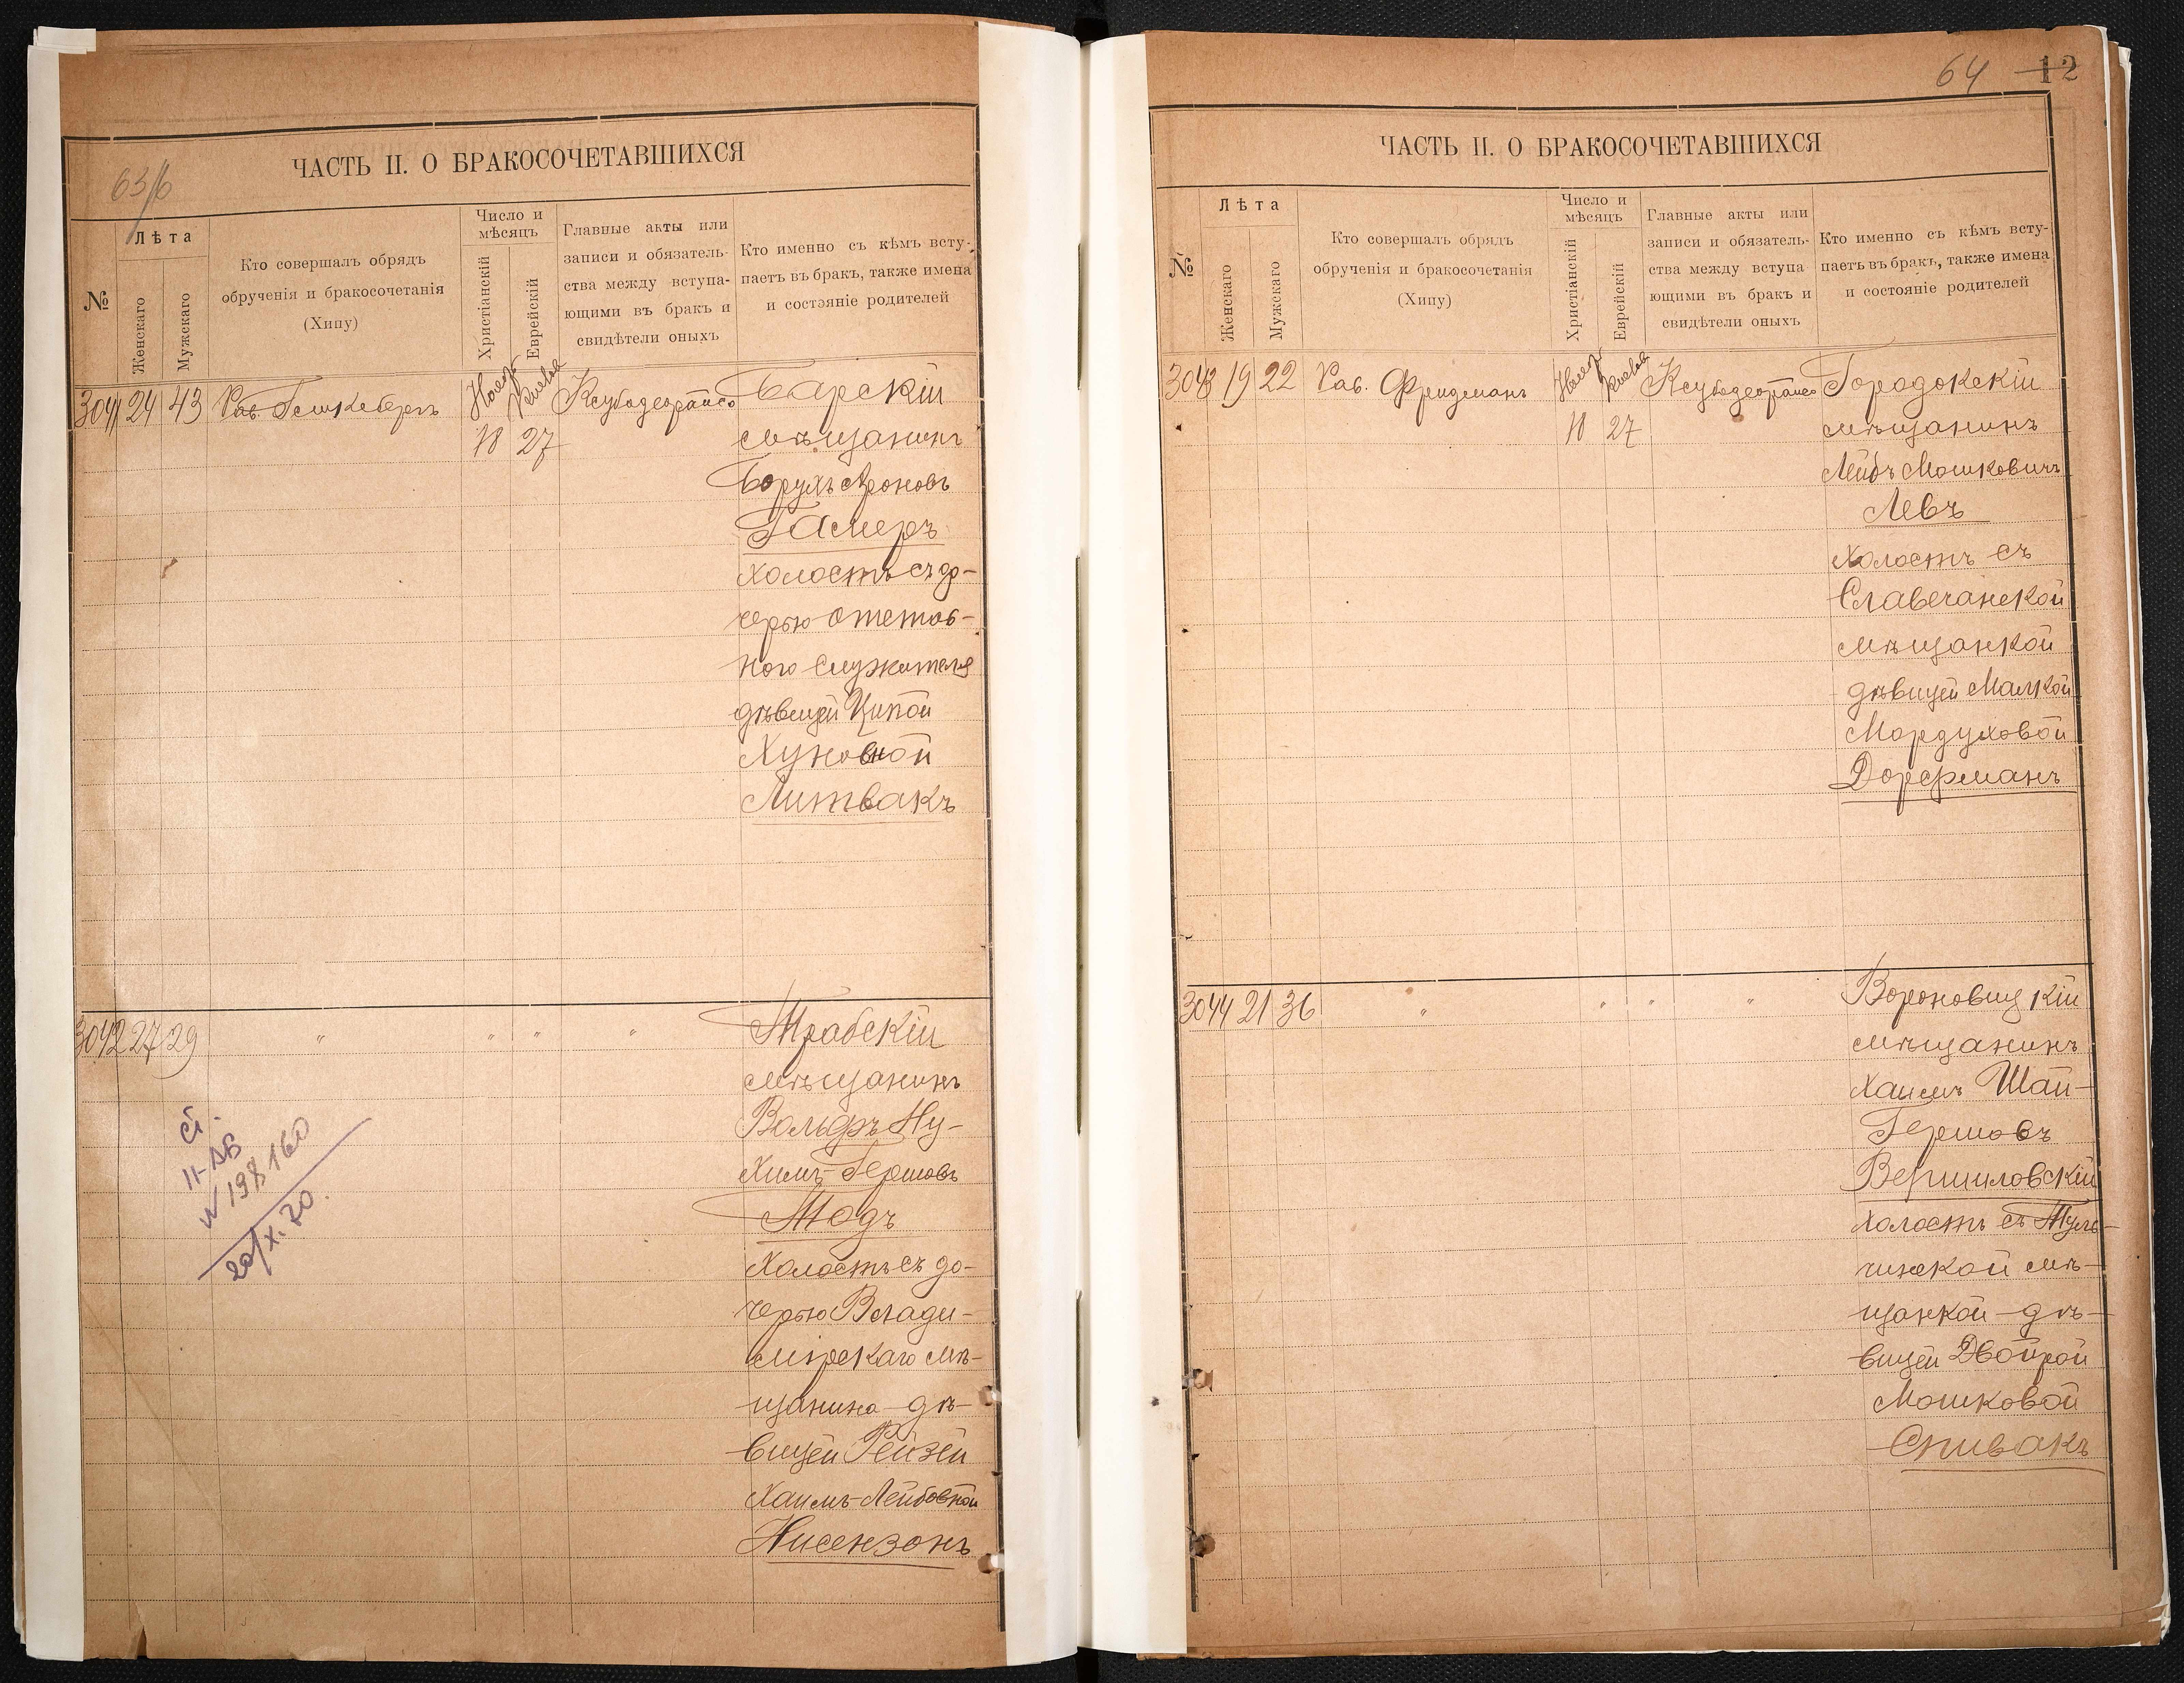 63/б
ЧАСТЬ II. О БРАКОСОЧЕТАВШИХСЯ
№
Лѣта
Женскаго
Мужскаго
Кто совершалъ обрядъ
обрученія и бракосочетанія
(Хипу)
Число и
мѣсяцъ
Христіанскій
Еврейскій
Главные акты или
записи и обязатель-
ства между вступа-
ющими въ бракъ и
свидѣтели оныхъ
Кто именно съ кѣмъ всту-
паетъ въ бракъ, также имена
и состояніе родителей
3041 24 43 Рав.
18 27
Барскій
мѣщанинъ
Борухъ Ароновъ
Гамеръ
холостъ съ до-
черью отстав-
ного служителя
дѣвицей Ципой
Хуновной
Литвакъ
3042 27 29 " " " "
Трабскій
мѣщанинъ
Вольфъ Ну-
химъ-Гершовъ
Тодъ
холостъ съ до-
черью Влади-
мірскаго мѣ-
щанина-дѣ-
вицей Рейзей
Хаимъ-Лейбовной
Нисензонъ
II-АВ
20/X.70.
64 12
ЧАСТЬ II. О БРАКОСОЧЕТАВШИХСЯ
№
Лѣта
Женскаго
Мужскаго
Кто совершалъ обрядъ
обрученія и бракосочетанія
(Хипу)
Число и
мѣсяцъ
Христіанскій
Еврейскій
Главные акты или
записи и обязатель-
ства между вступа-
ющими въ бракъ и
свидѣтели оныхъ
Кто именно съ кѣмъ всту-
паетъ въ бракъ, также имена
и состояніе родителей
3043 19 22 Рав. Фридманъ
18 27
Городокскій
мѣщанинъ
Лейбъ Мошковичъ
Левъ
холостъ съ
Славечанской
мѣщанкой
дѣвицей Малкой
Мордуховой
Дорфманъ
3044 21 36 " " " "
Вороновицкій
мѣщанинъ
Хаимъ Шай-
Гершовъ
Вершиловскій
холостъ съ Туль-
чинской мѣ-
щанкой-дѣ-
вицей Двойрой
Мошковой
Спивакъ